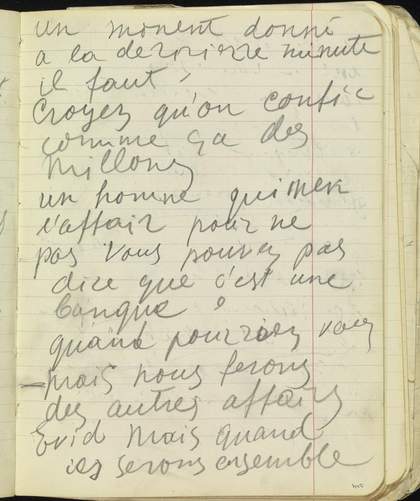 un moment donné
a la dernierre minute
il faut
Croyez qu'on confie
comme ça des
millons
un homme qui
l'affair pour ne
pas Vous pouvez pas
dire que c'est une
banque ?
quand pourriez vous
— mais nous ferons
des autres affairs
Evid Mais quand
ils serons ensemble